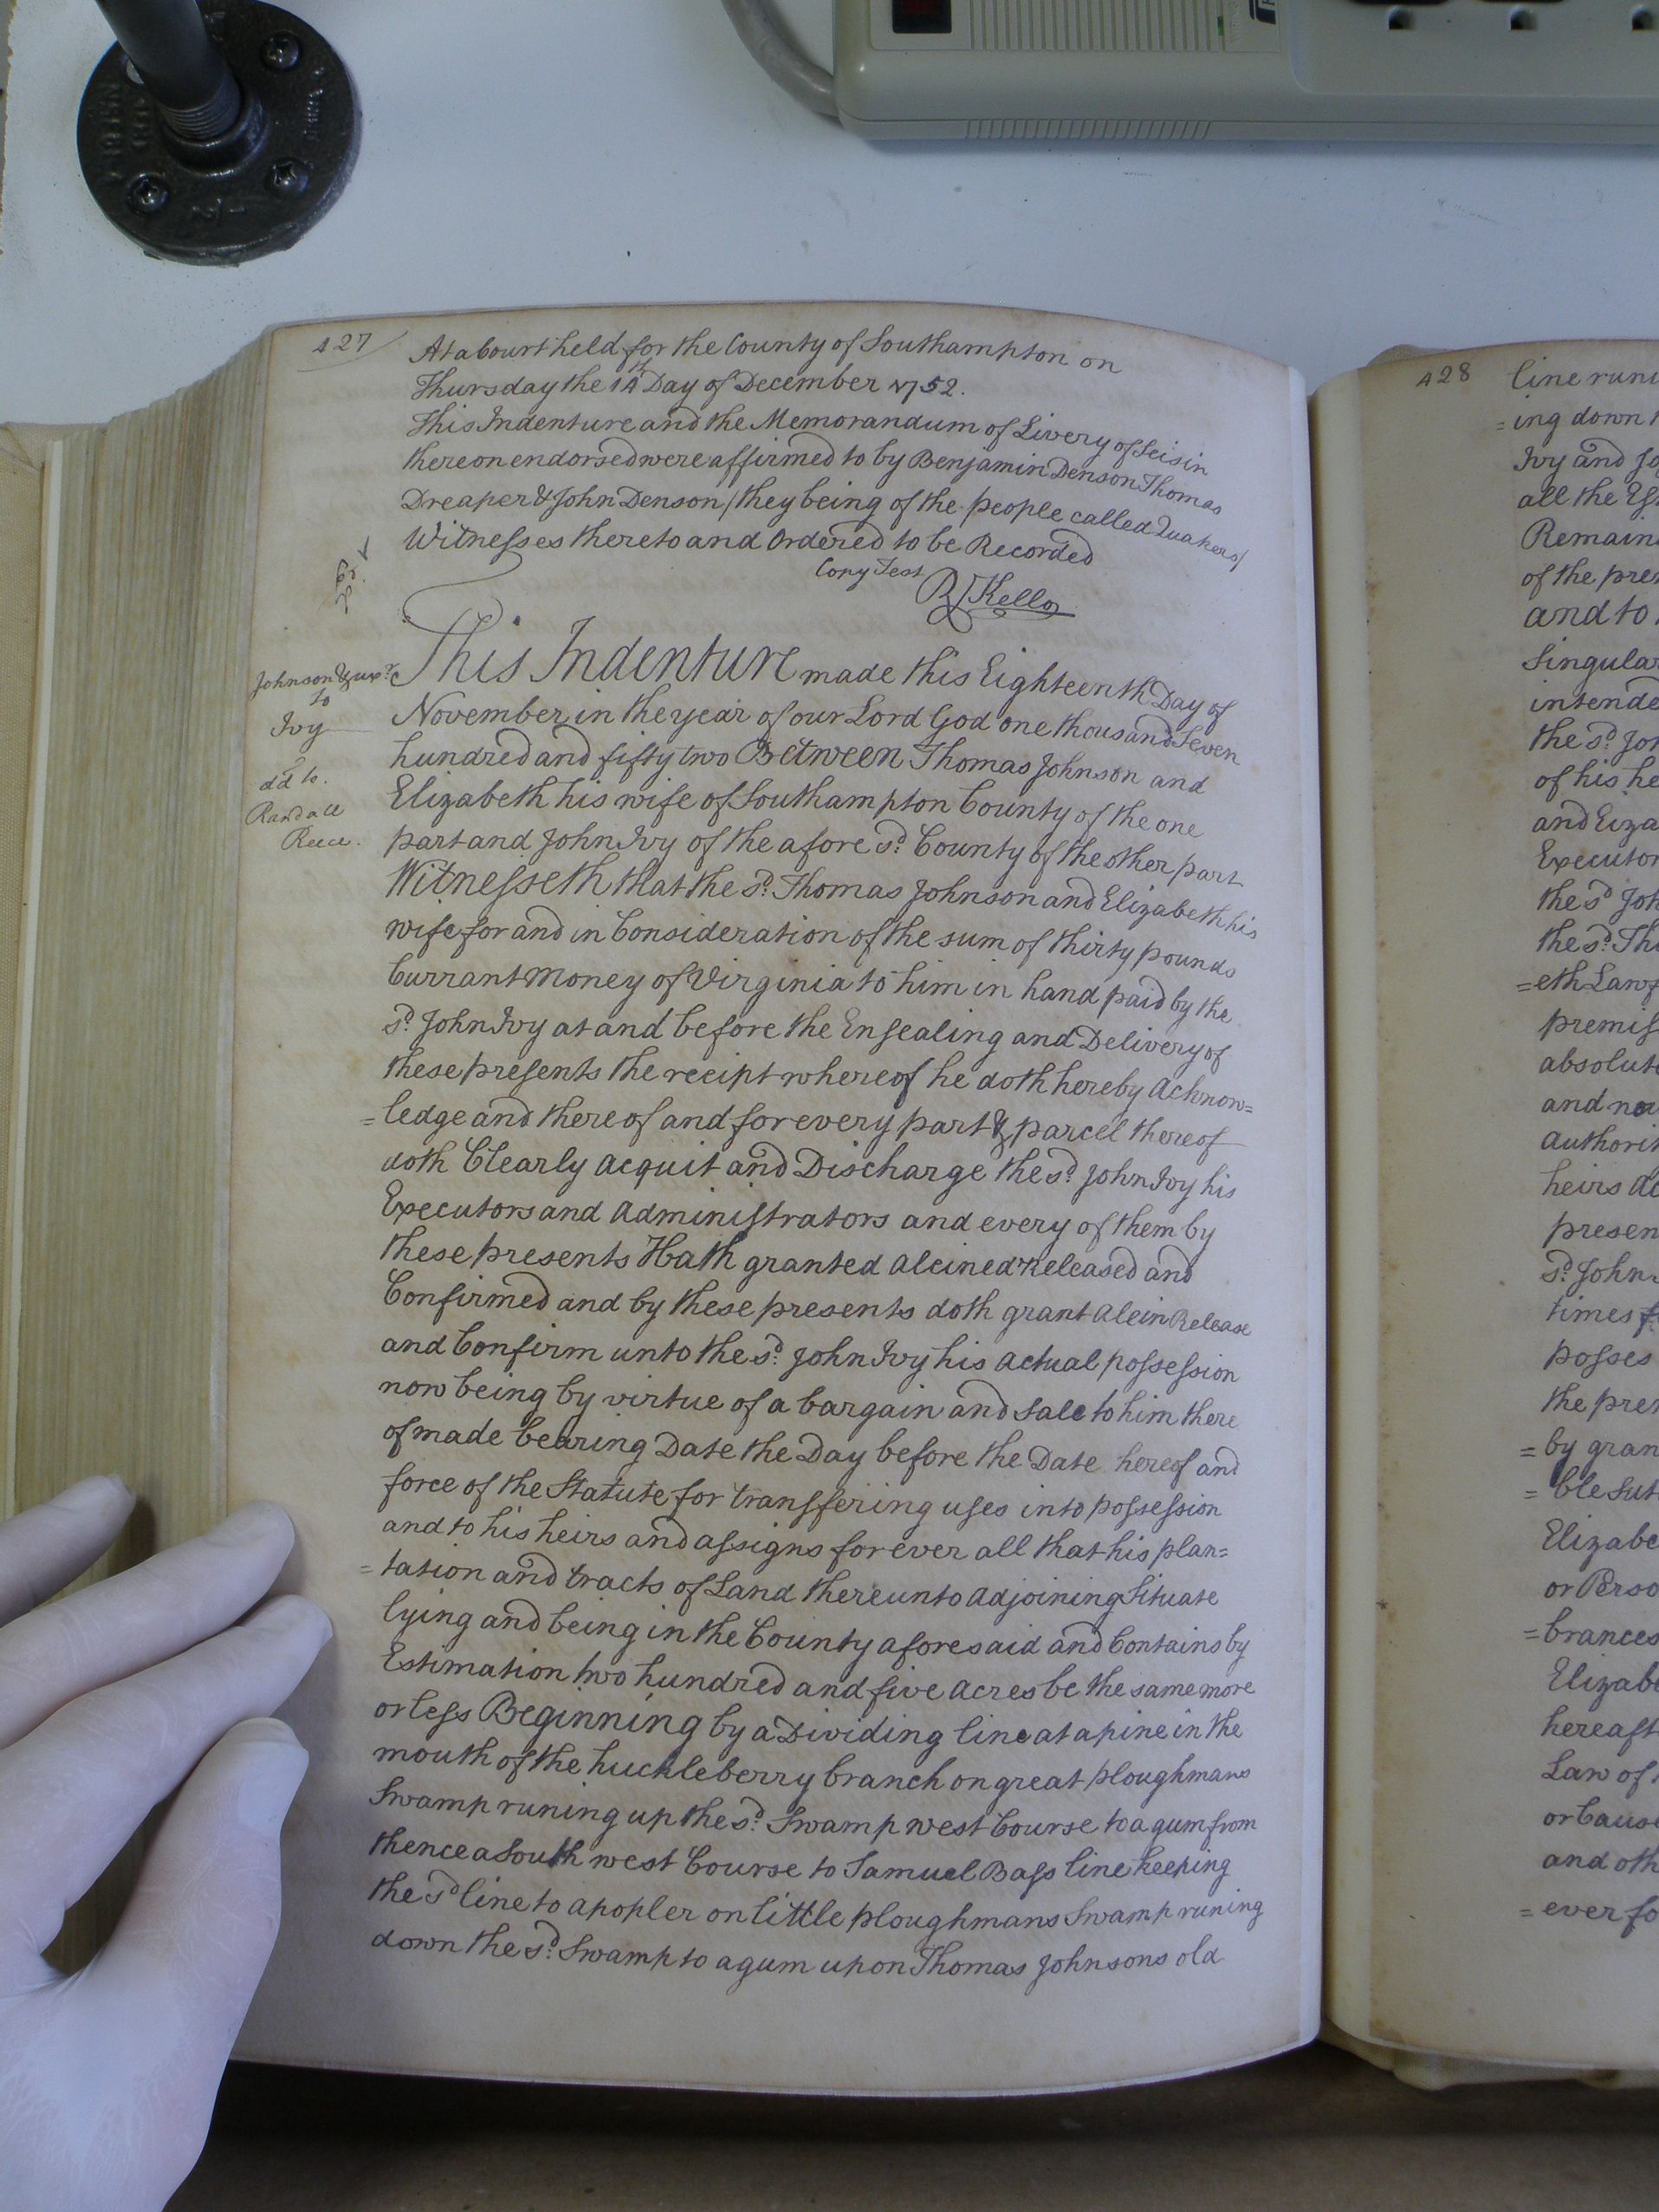 427
At a Court held for the County of Southampton on
Thursday the 14th Day of December 1752.
This Indenture and the Memorandum of Livery of Seisin
thereon endorsed were affirmed to by Benjamin Denson Thomas
Dreaper & John Denson /they being of the people called Quakers/
Witnesses thereto and Ordered to be Recorded
Copy Test
R/Kello
Johnson & uxr.
to
Ivy
dd to.
Randall
Reece.
This Indenture made this Eighteenth Day of
November in the year of our Lord God one thousand Seven
hundred and fifty two Between Thomas Johnson and
Elizabeth his wife of Southampton County of the one
part and John Ivy of the afore sd. County of the other part
Witnesseth that the sd. Thomas Johnson and Elizabeth his
wife for and in Consideration of the sum of thirty pounds
Currant Money of Virginia to him in hand paid by the
sd. John Ivy at and before the Ensealing and Delivery of
these presents the recipt whereof he doth hereby Acknow=
=ledge and thereof and for every part & parcel thereof
doth Clearly Acquit and Discharge the sd. John Ivy his
Executors and Administrators and every of them by
these presents Hath granted Aleined Released and
Confirmed and by these presents doth grant Alein Release
and Confirm unto the sd. John Ivy his Actual possession
now being by virtue of a bargain and Sale to him there
of made bearing Date the Day before the Date hereof and
force of the Statute for transfering uses into possession
and to his heirs and assigns for ever all that his plan=
=tation and tracts of Land thereunto Adjoining Situate
lying and being in the County aforesaid and Contains by
Estimation two hundred and five Acres be the same more
or less Beginning by a Dividing line at a pine in the
mouth of the huckleberry branch on great ploughmans
Swamp runing up the sd. Swamp west Course to a gum from
thence a South west Course to Samuel Bass line keeping
the sd line to a popler on little ploughmans Swamp runing
down the sd. Swamp to a gum upon Thomas Johnsons old
428
line runi
=ing down
Ivy and Jo
all the Es
Remain
of the pre
and to
Singular
intende
the sd. Joh
of his he
and Eliza
Executor
the sd Joh
the sd. Tho
=eth Lawf
premis
absolute
and now
authorit
heirs
presen
sd. John
times f
posses
the prem
=by gran
=ble Sut
Elizabe
or Perso
=brances
Elizabe
hereaft
Law of
or Cause
and oth
=ever fo